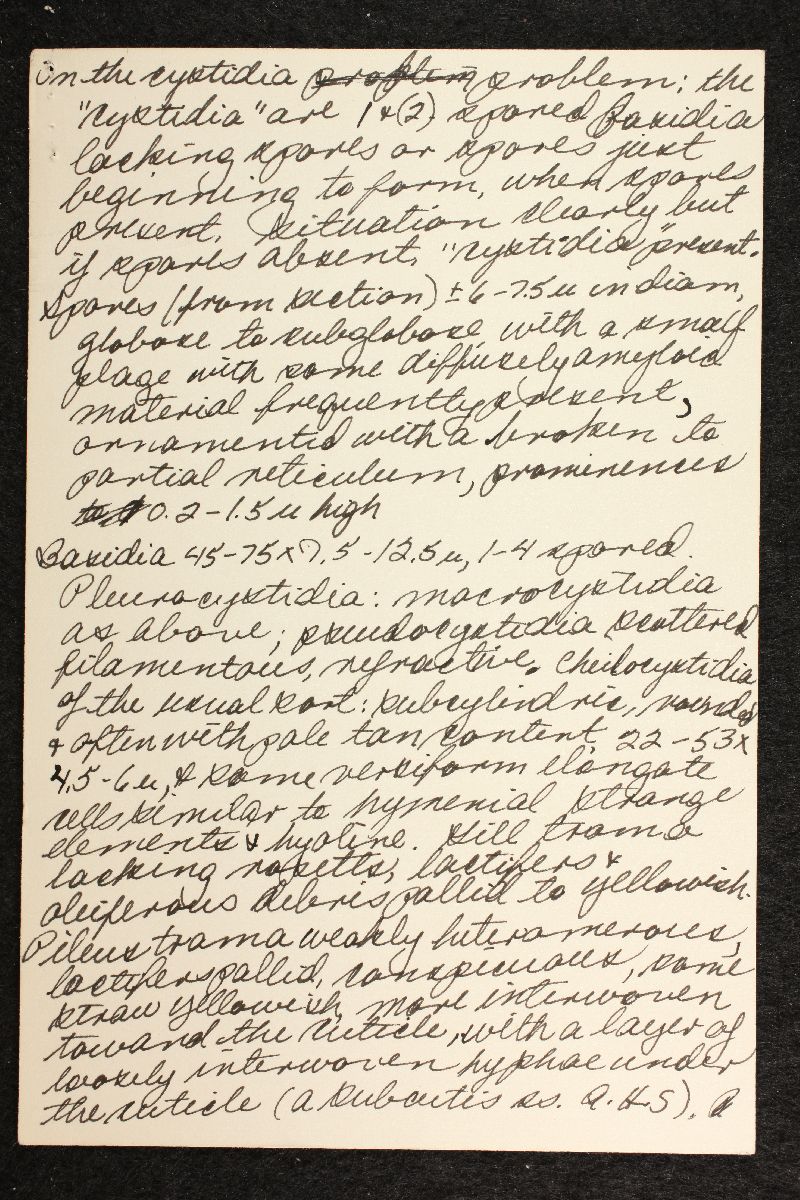 On the cystidia problem problem: the
"cystidia" are 1 & (2) spored Basidia
lacking spores or spores just
beginning to form, when spores
present. Situation clearly but
if spores absent. "cystidia" present.
Spores (from section) ± 6-7.5 u in diam,
globose to subglobose with a small
plage with some diffusely amyloid
material frequently present,
ornamented with a broken to
partial reticulum, prominences
0.2-1.5 u high
Basidia 45-75 x 7.5-12.5 u, 1-4 spored.
Pleurocystidia: macrocystidia
as above; pseudocystidia scattered
filamentous, refractive. Cheilocystidia
of the usual sort: subcylindric, rounded
& often with pale tan content 22-53 x
4.5-6 u, & some versiform elongate
cells similar to hymenial strange
elements & hyaline. Gill trama
lacking rosetts, lactifers &
oleiferous debris pallid to yellowish.
Pileus trama weakly heteromerous,
lactifers pallid, conspicuous, some
straw yellowish more interwoven
toward the cuticle, with a layer of
loosely interwoven hyphae under
the cuticle (a subcutis ss. A.H.S). a